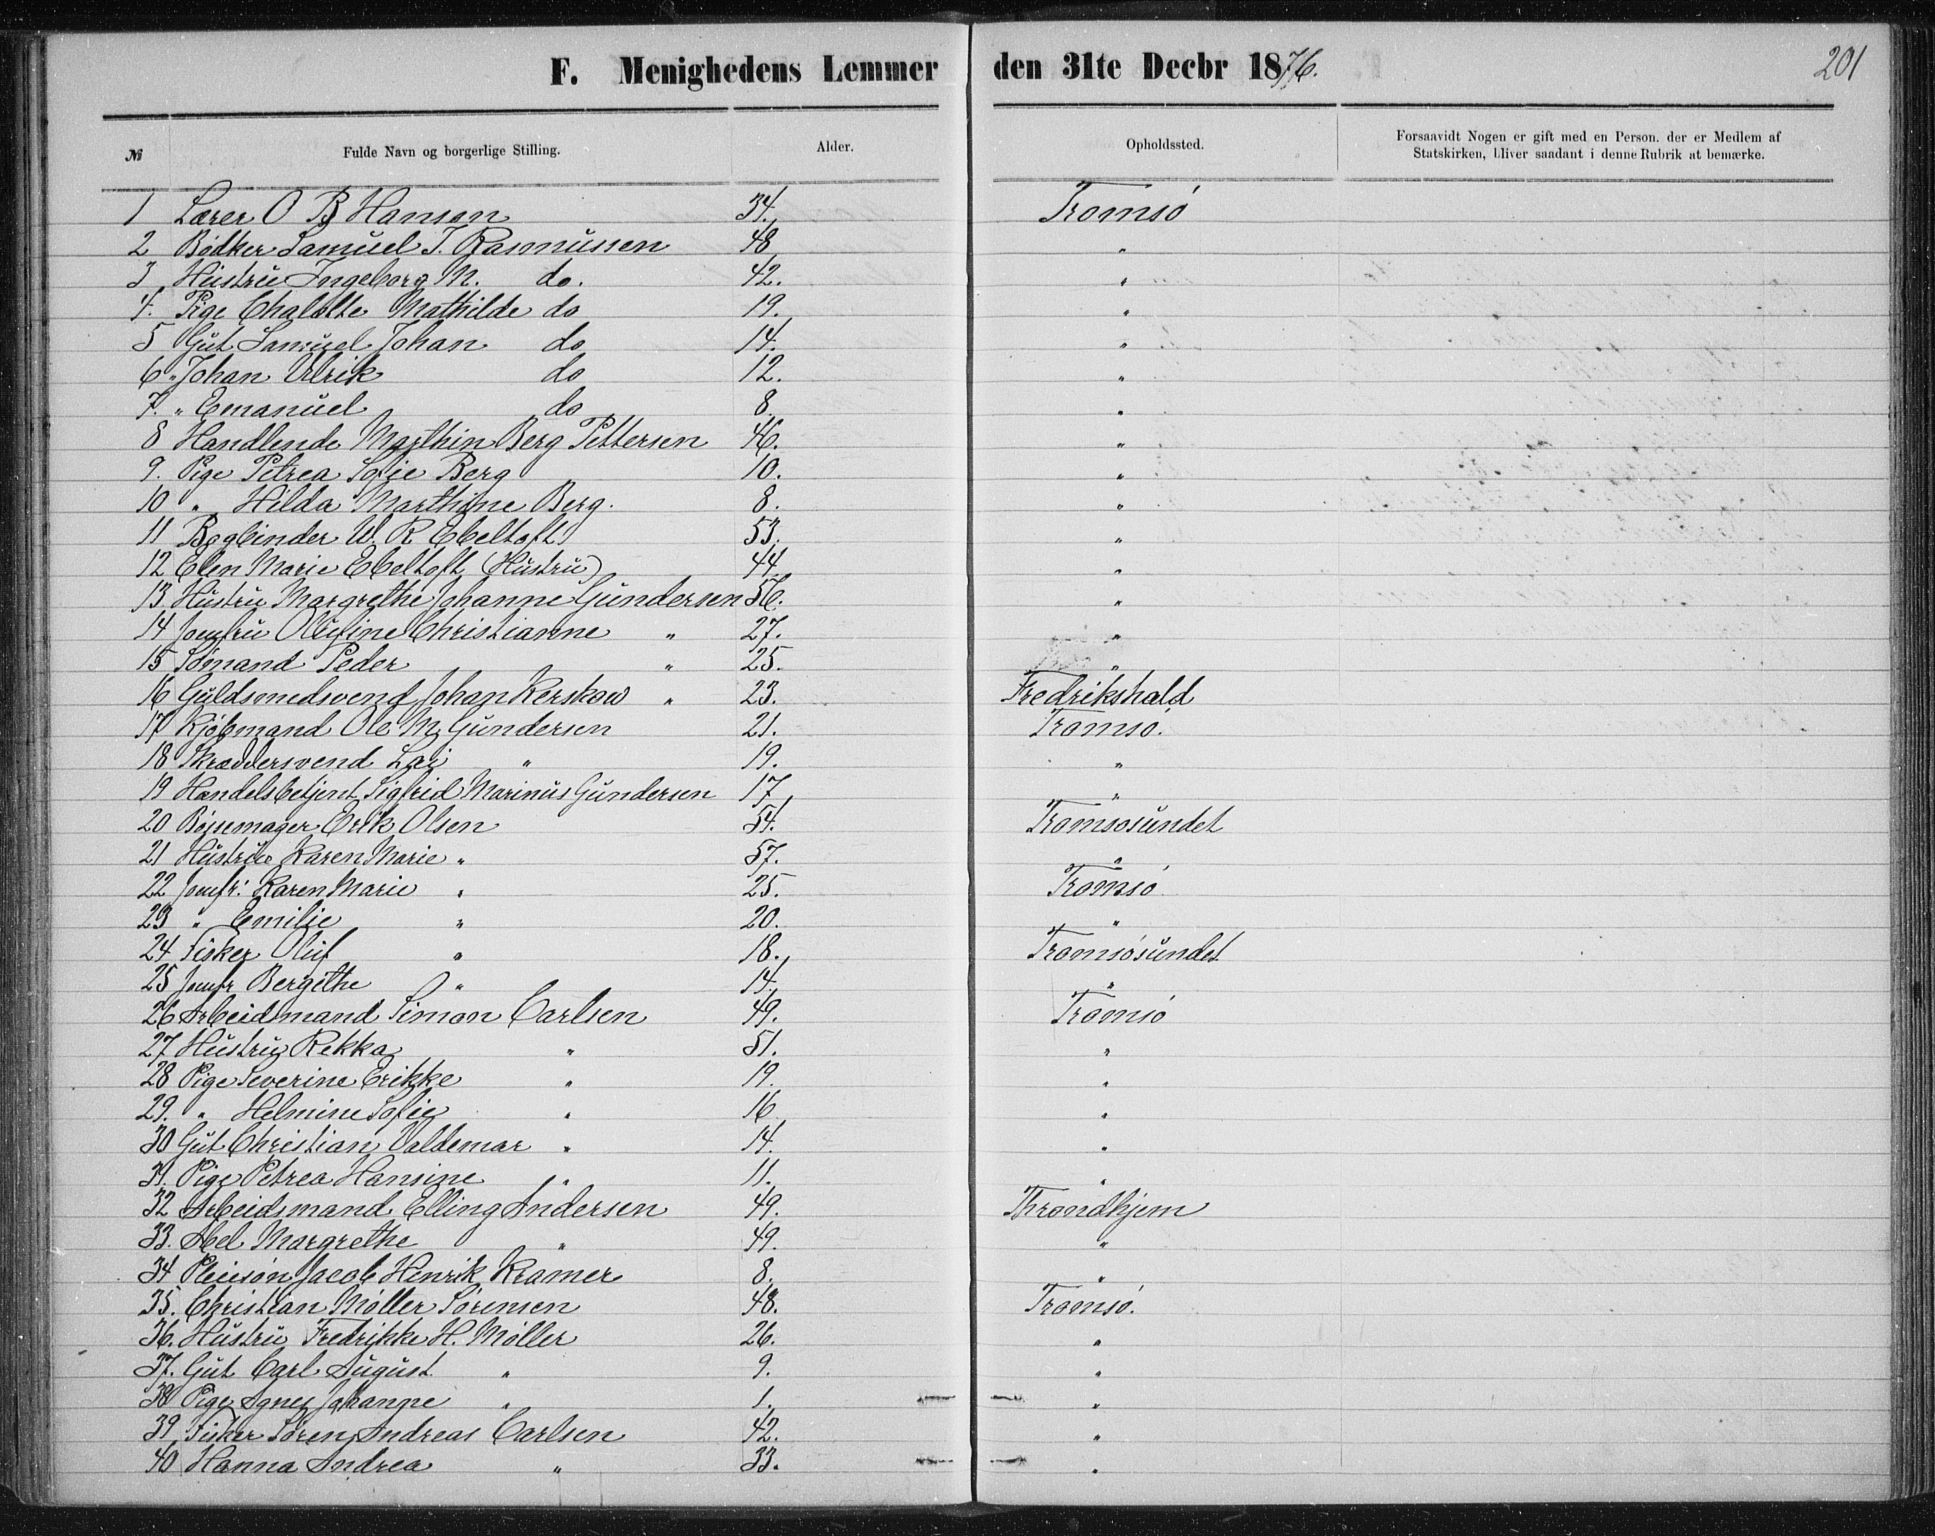 F. Menighedens Lemmer den 31te Decbr 1876. 201
№ Fulde Navn og borgerlige Stilling. Alder. Opholdssted. Forsaavidt Nogen er gift med en Person, der er Medlem af
Statskirken, bliver saadant i denne Rubrik at bemærke.
1 Lærer O B Hansen 34. Tromsø
2 Bødker Samuel J. Rasmussen 48 "
3 Hustru Ingeborg M. do. 42. "
4. Pige Chalotte Mathilde do 19. "
5 Gut Samuel Johan do 14. "
6 " Johan Ulrik do 12. "
7. " Emanuel do 8. "
8 Handlende Marthin Berg Pettersen 46. "
9. Pige Petrea Sofie Berg 10. "
10 " Hilda Marthine Berg. 8. "
11 Bogbinder W. R. Ebeltoft 53. "
12 Elen Marie Ebeltoft (Hustru) 44. "
13 Hustru Margrethe Johanne Gundersen 56. "
14 Jomfru Olufine Christianne " 27. "
15 Sømand Peder " 25. "
16 Guldsmedsvend Johan Kerskow " 23. Fredrikshald
17 Kjøbmand Ole M. Gundersen 21. Tromsø.
18 Skræddersvend Lai " 19. "
19 Handelsbetjent Sigfrid Marinus Gundersen 17. "
20 Bøssemager Erik Olsen 54. Tromsøsundet
21 Hustru Karen Marie " 57. "
22 Jomfr: Karen Marie " 25. Tromsø
23 " Emilie " 20. "
24 Fisker Oluf " 18. Tromsøsundet
25 Jomfr Bergithe " 14. "
26 Arbeidsmand Simon Carlsen 49. Tromsø
27 Hustru Rekka " 51. "
28 Pige Severine Erikke " 19. "
29. " Helmine Sofie " 16 "
30 Gut Christian Valdemar " 14. "
31. Pige Petrea Hansine " 11. "
32 Arbeidsmand Elling Andersen 49. Throndhjem
33. Abel Margrethe " 49. "
34 Pleiesøn Jacob Henrik Kramer 8. "
35. Christian Møller Sørensen 48. Tromsø.
36. Hustru Fredrikke H. Møller 26. "
37. Gut Carl August " 9. "
38 Pige Agnes Johanne " 1. "
39 Fisker Søren Andreas Carlsen 42. "
40 Hanna Andrea " 33. "